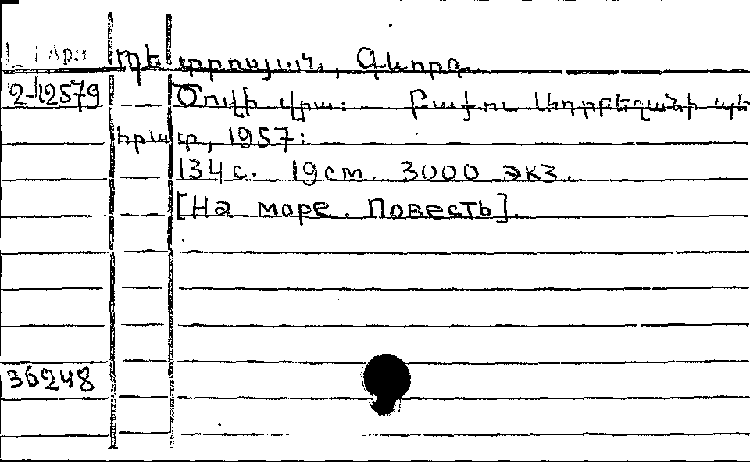 Պետրոսյան, Գևորգ.
2-12579 Ծովի վրա: Բաքու Ադրբեջանի պե
հրատ, 1957:
134 с. 19 cm. 3000 экз.
[На море. Повесть].
36248